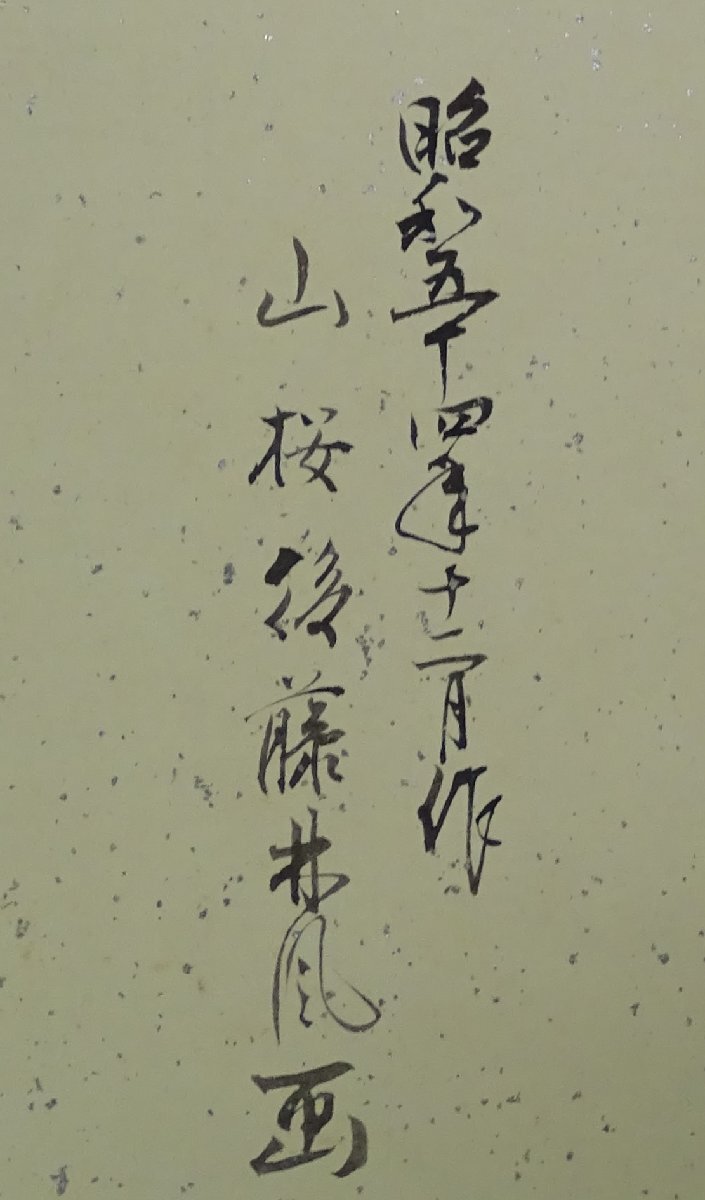 昭和五十四年十二月作
山桜後藤林風画